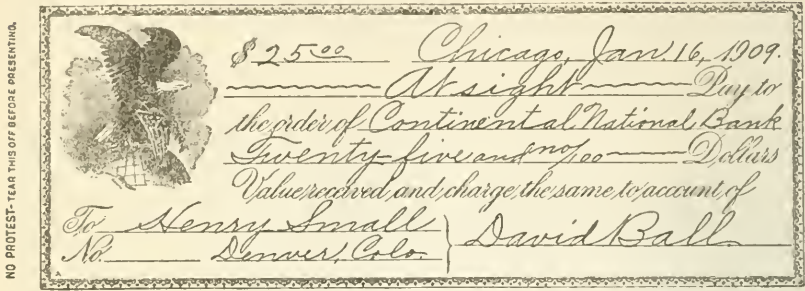 NO PROTEST-TEAR THIS OFF BEFORE PRESENTING.
$25 00 Chicago, Jan. 16, 1909.
At sight Pay to
the order of Continental National Bank
Twenty-five and no/100 Dollars
Value received and charge the same to account of
To Henry Small
No. Denver, Colo.
David Ball